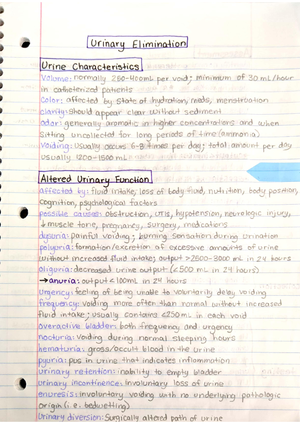 Urinary Elimination
Urine Characteristics
Volume: normally 250-400mL per void; minimum of 30 mL/hour
in catheterized patients
color: affected by state of hydration, meds, menstruation
clarity: should appear clear without sediment
odor: generally aromatic in higher concentrations and when
sitting uncollected for long periods of time (ammonia)
voiding: usually occurs 6-8 times per day; total amount per day
usually 1200-1500 mL
Altered Urinary Function
affected by: fluid intake, loss of body fluid, nutrition, body position,
cognition, psychological factors
possible causes: obstruction, UTIs, hypotension, neurologic injury,
↓ muscle tone, pregnancy, surgery, medications
dysuria: painful voiding; burning sensation during urination
polyuria: formation/excretion of excessive amounts of urine
without increased fluid intake; output >2500-3000 mL in 24 hours
oliguria: decreased urine output (<500 mL in 24 hours)
→ anuria: output <100mL in 24 hours
Urgency: feeling of being unable to voluntarily delay voiding
frequency: voiding more often than normal without increased
fluid intake; usually contains <250mL in each void
overactive bladder: both frequency and urgency
nocturia: voiding during normal sleeping hours
hematuria: gross/occult blood in the urine
pyuria: pus in urine that indicates inflammation
urinary retention: inability to empty bladder
urinary incontinence: involuntary loss of urine
enuresis: involuntary voiding with no underlying pathologic
origin (i.e. bedwetting)
Urinary diversion: surgically altered path of urine